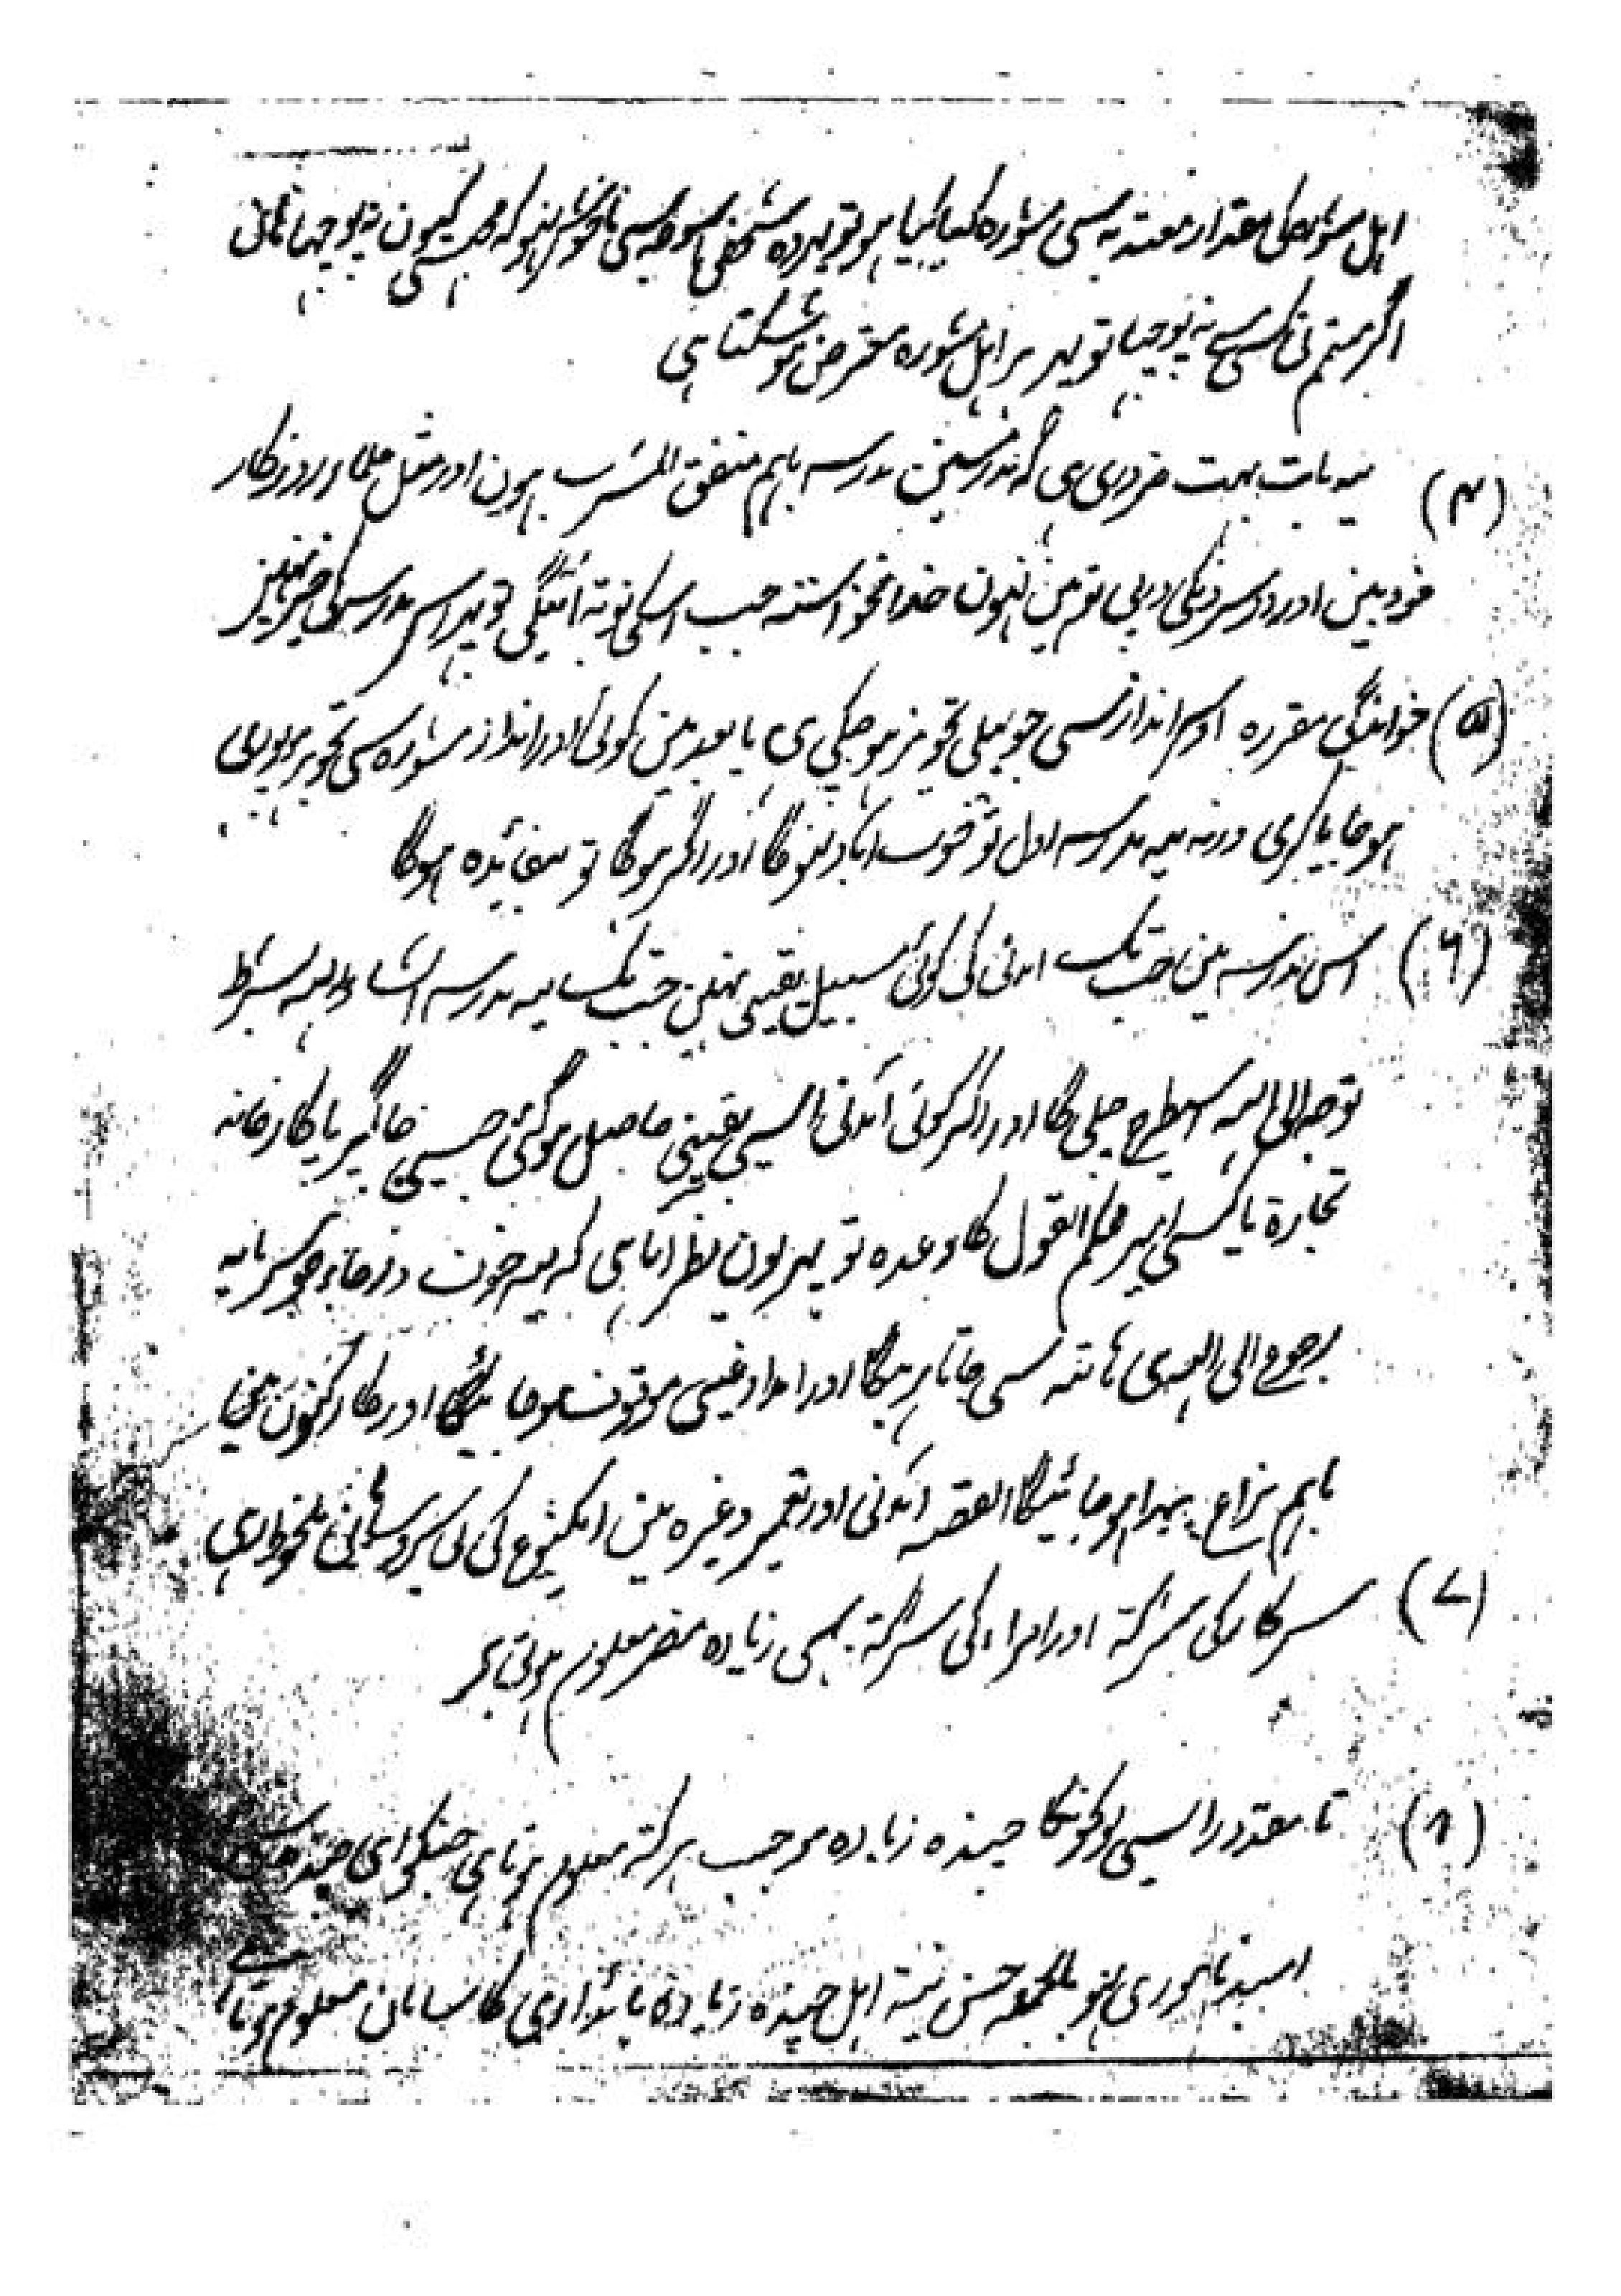 اہل مشورہ کی مقدار معتد بہ سی مشورہ کیا گیا ہو تو پہر وہ شخص اس وجہ سی ناخوش نہو کہ مجہہ سی کیون نہ پوچہا ہان
اگر مہتمم نی کسی سے نہ پوچہا تو پہر ہر اہل مشورہ معترض ہو سکتا ہی
(۴) یہ بات بہت ضروری ہی کہ مدرسین مدرسہ باہم متفق المشرب ہون اور مثل علماء روزگار
خودبین اور دوسرونکی درپی توہین نہون خدا نخواستہ جب اسکی نوبہ آئیگی تو پہر اس مدرسہ کی خیر نہین
(۵) خواندگی مقررہ اوس انداز سی جو پہلی تجویز ہو چکی ہی یا بعد مین کوئی اور انداز مشورہ سی تجویز ہو پوری
ہو جایا کری ورنہ یہ مدرسہ اول تو خوب آباد نہوگا اور اگر ہوگا تو بیفائدہ ہوگا
(۶) اس مدرسہ مین جب تک آمدنی کی کوئی سبیل یقینی نہین جب تک یہ مدرسہ انشاء اللہ بشرط
توجہ الی اللہ اسیطرح چلیگا اور اگر کوئی آمدنی ایسی یقینی حاصل ہوگئی جیسی جاگیر یا کارخانہ
تجارۃ یا کسی امیر محکم القول کا وعدہ تو پہر یون نظر آتا ہی کہ یہ خوف و رجاء جو سرمایہ
رجوع الی اللہ ہی ہاتہ سی جاتا رہیگا اور امداد غیبی موقوف ہو جائیگی اور کارکنون مین
باہم نزاع پیدا ہو جائیگا القصہ آمدنی اور تعمیر وغیرہ مین ایک نوع کی بی سروسامانی ملحوظ رہی
(۷) سرکار کی شرکۃ اور امراء کی شرکۃ بہی زیادہ مضر معلوم ہوتی ہی
(۸) تا مقدور ایسی لوگونکا چندہ زیادہ موجب برکۃ معلوم ہوتا ہی جنکو اپنی چندہ سے
امید ناموری نہو بالجملہ حسن نیۃ اہل چندہ زیادہ پائداری کا سامان معلوم ہوتا ہے